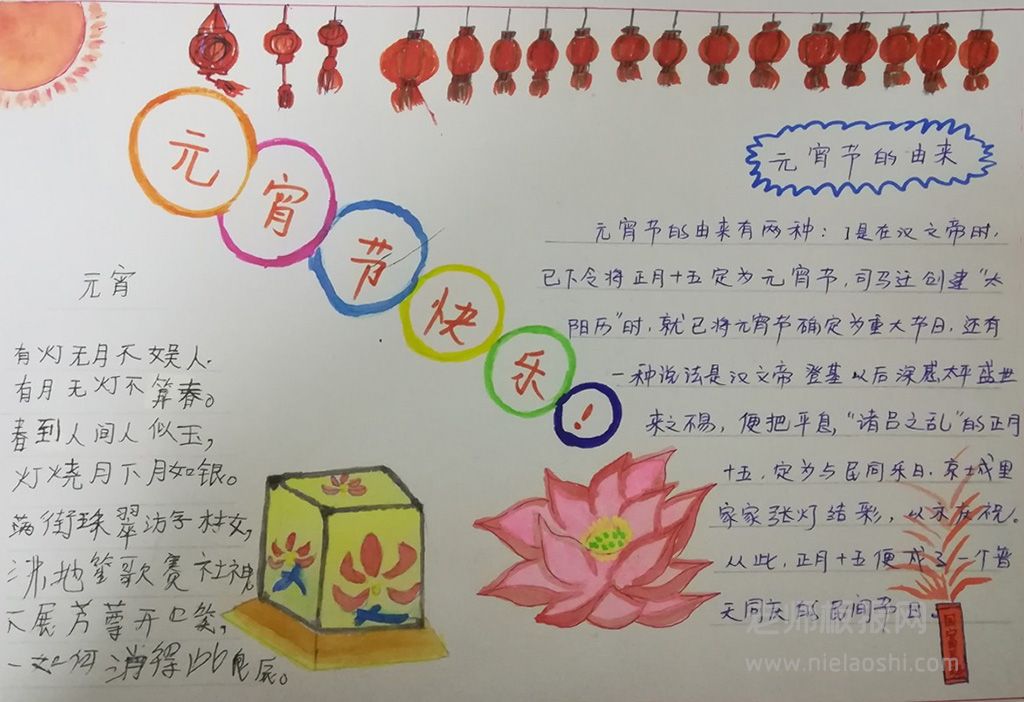 元宵节快乐!
元宵
有灯无月不娱人.
有月无灯不算春。
春到人间人似玉,
灯烧月下月如银。
满街珠翠游村女,
沸地笙歌赛社神
不展芳尊开口笑,
如何消得此良辰。
元宵节的由来
元宵节的由来有两种:1是在汉文帝时,
已下令将正月十五定为元宵节,司马迁创建“太
阳历”时,就已将元宵节确定为重大节日,还有
一种说法是汉文帝登基以后深感太平盛世
来之不易,便把平息“诸吕之乱”的正月
十五,定为与民同乐日,京城里
家家张灯结彩,以示庆祝。
从此,正月十五便成了一个普
天同庆的民间节日。
老师板报网
www.nielaoshi.com